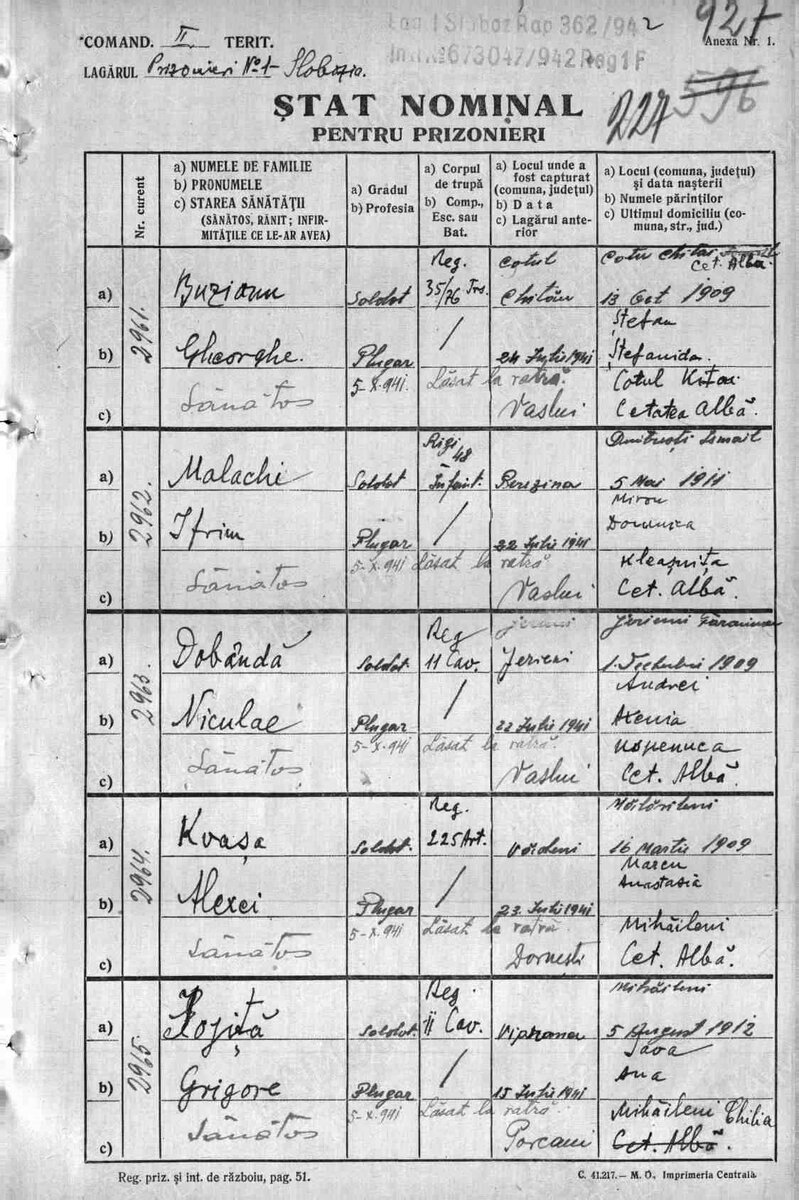 Lag. I Sloboz Rap 362/942
927
COMAND. II TERIT.
Anexa Nr. 1.
Int. № 673047/942 Reg 1 F
LAGĂRUL Prizonieri № 1 Slobozia.
596
ȘTAT NOMINAL
227
PENTRU PRIZONIERI
Nr. curent
a) NUMELE DE FAMILIE
b) PRONUMELE
c) STAREA SĂNĂTĂȚII
(SĂNĂTOS, RĂNIT; INFIR-
MITĂȚILE CE LE-AR AVEA)
a) Gradul
b) Profesia
a) Corpul
de trupă
b) Comp.,
Esc. sau
Bat.
a) Locul unde a
fost capturat
(comuna, județul)
b) Data
c) Lagărul ante-
rior
a) Locul (comuna, județul)
și data nașterii
b) Numele părinților
c) Ultimul domiciliu (co-
muna, str., jud.)
2961.
Reg. Cotul Cotu Chitai
Cet. Alba.
a) Buzianu Soldat 35/76 Trs. Chitău 13 Oct 1909
Ștefan
b) Gheorghe. Plugar / 24 Iulie 1941 Ștefanida.
5-X-941 Lăsat la vatră. Cotul Kitai
c) Sănătos Vaslui Cetatea Albă.
2962.
48 Ismail
a) Malachi Soldat Infant. Berezina 5 Mai 1911
Miron
b) Ifrim Plugar / 22 Iulie 1941 Domnica
5-X-941 Lăsat la vatră Kleașnița
c) Sănătos Vaslui Cet. Albă.
2963.
Reg
a) Dobândă Soldat. 11 Cav. Jerieni 1909
Andrei
b) Niculae Plugar / 22 Iulie 1941 Axenia
5-X-941 Lăsat la vatră.
c) Sănătos Vaslui Cet. Albă.
2964.
Reg.
a) Kvașa Soldat. 225 Art. Voideni 16 Martie 1909
Marcu
b) Alexei Plugar / 23 Iulie 1941 Anastasia
5-X-941 Lăsat la vatră Mihăileni
c) Sănătos Dornești Cet. Albă.
2965
Reg. Mihăileni
a) Rojiță Soldat. 11 Cav. 5 August 1912
Sava
b) Grigore Plugar / 15 Iulie 1941 Ana
5-X-941 Lăsat la vatră Mihăileni Chilia
c) Sănătos Porcani Cet. Albă.
Reg. priz. și int. de războiu, pag. 51.
C. 41.217.— M. O., Imprimeria Centrală.